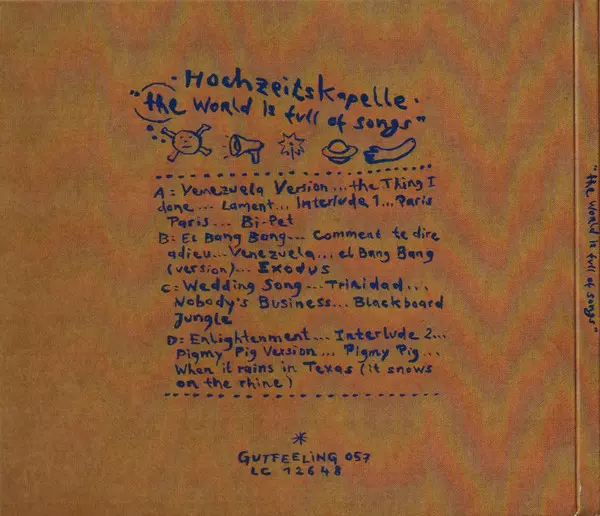 · Hochzeitskapelle ·
"the World is full of songs"
A: Venezuela Version... the Thing I
done ... Lament... Interlude 1... Paris
Paris... Bi-Pet
B: El Bang Bang... Comment te dire
adieu... Venezuela... el Bang Bang
(version)... Exodus
C: Wedding Song ... Trinidad...
Nobody's Business... Blackboard
Jungle
D: Enlightenment... Interlude 2...
Pigmy Pig Version... Pigmy Pig...
When it rains in Texas (it snows
on the rhine)
GUTFEELING 057
LC 12648
"the World is full of songs"